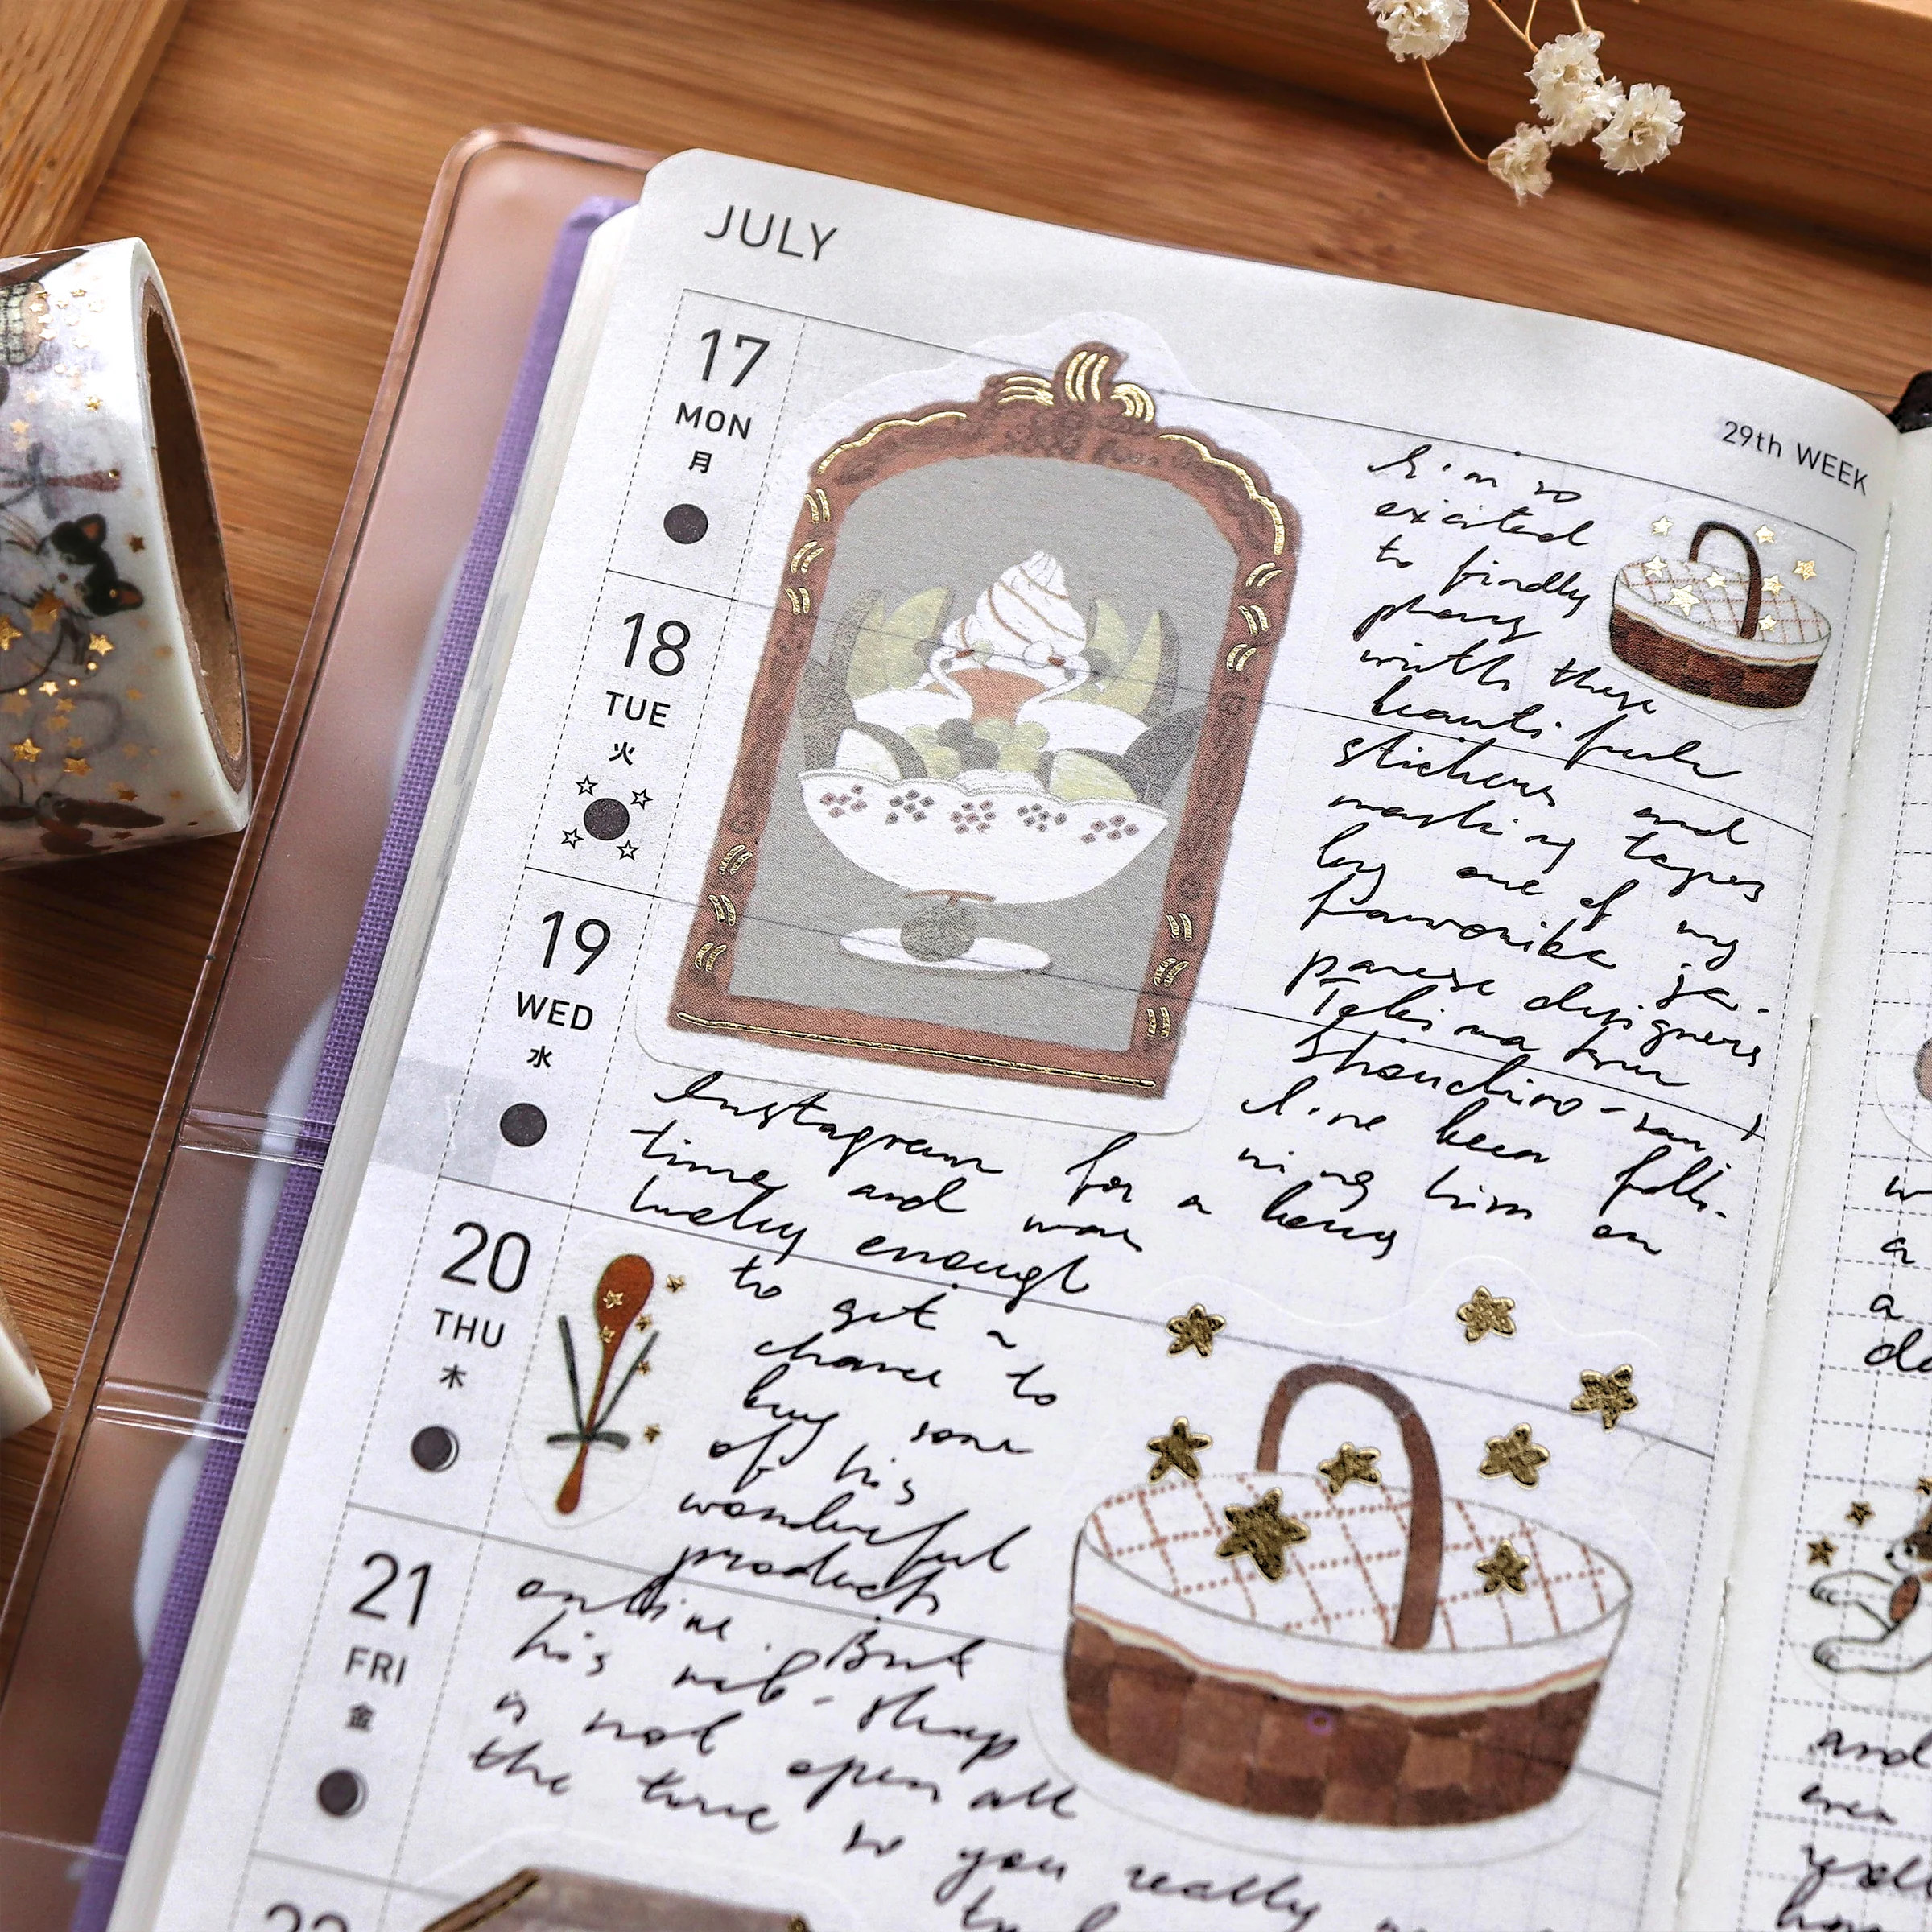 JULY
29th WEEK
17
MON
月
18
TUE
火
19
WED
水
20
THU
木
21
FRI
金
I'm so
excited
to finally
with these
beautiful
stickers and
masking tapes
by one of my
favorite ja-
panese designers
I've been follo-
wing him on
Instagram for a long
time and was
lucky enough
to get a
chance to
buy some
of his
wonderful
products
online. But
his web-shop
is not open all
the time so you really
and
even